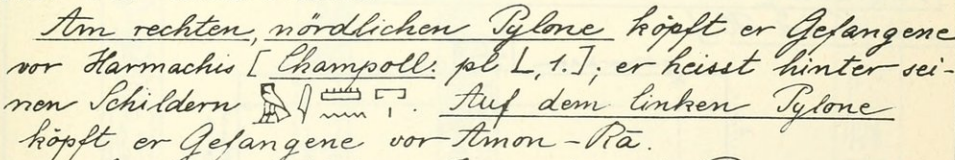 Am rechten, nördlichen Pylone köpft er Gefangene
vor Harmachis [Champoll. pl L, 1.]; er heisst hinter sei-
nen Schildern . Auf dem linken Pylone
köpft er Gefangene vor Amon-Rā.